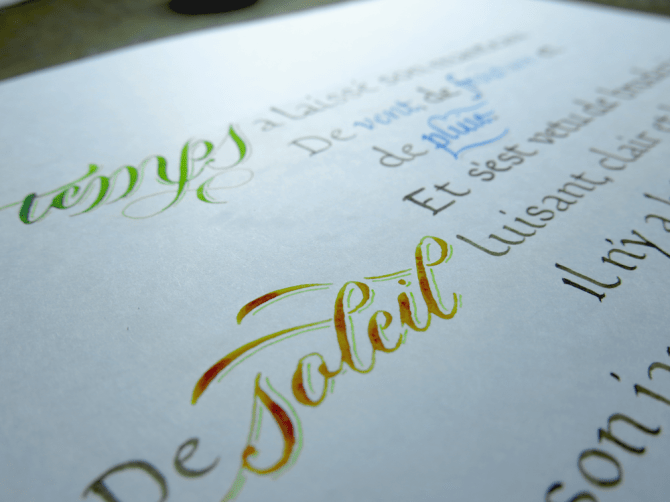 temps a laissé son manteau
De vent de froidure et
de pluie
Et s'est vetu de
De soleil luisant, clair et
Il n'y a
son